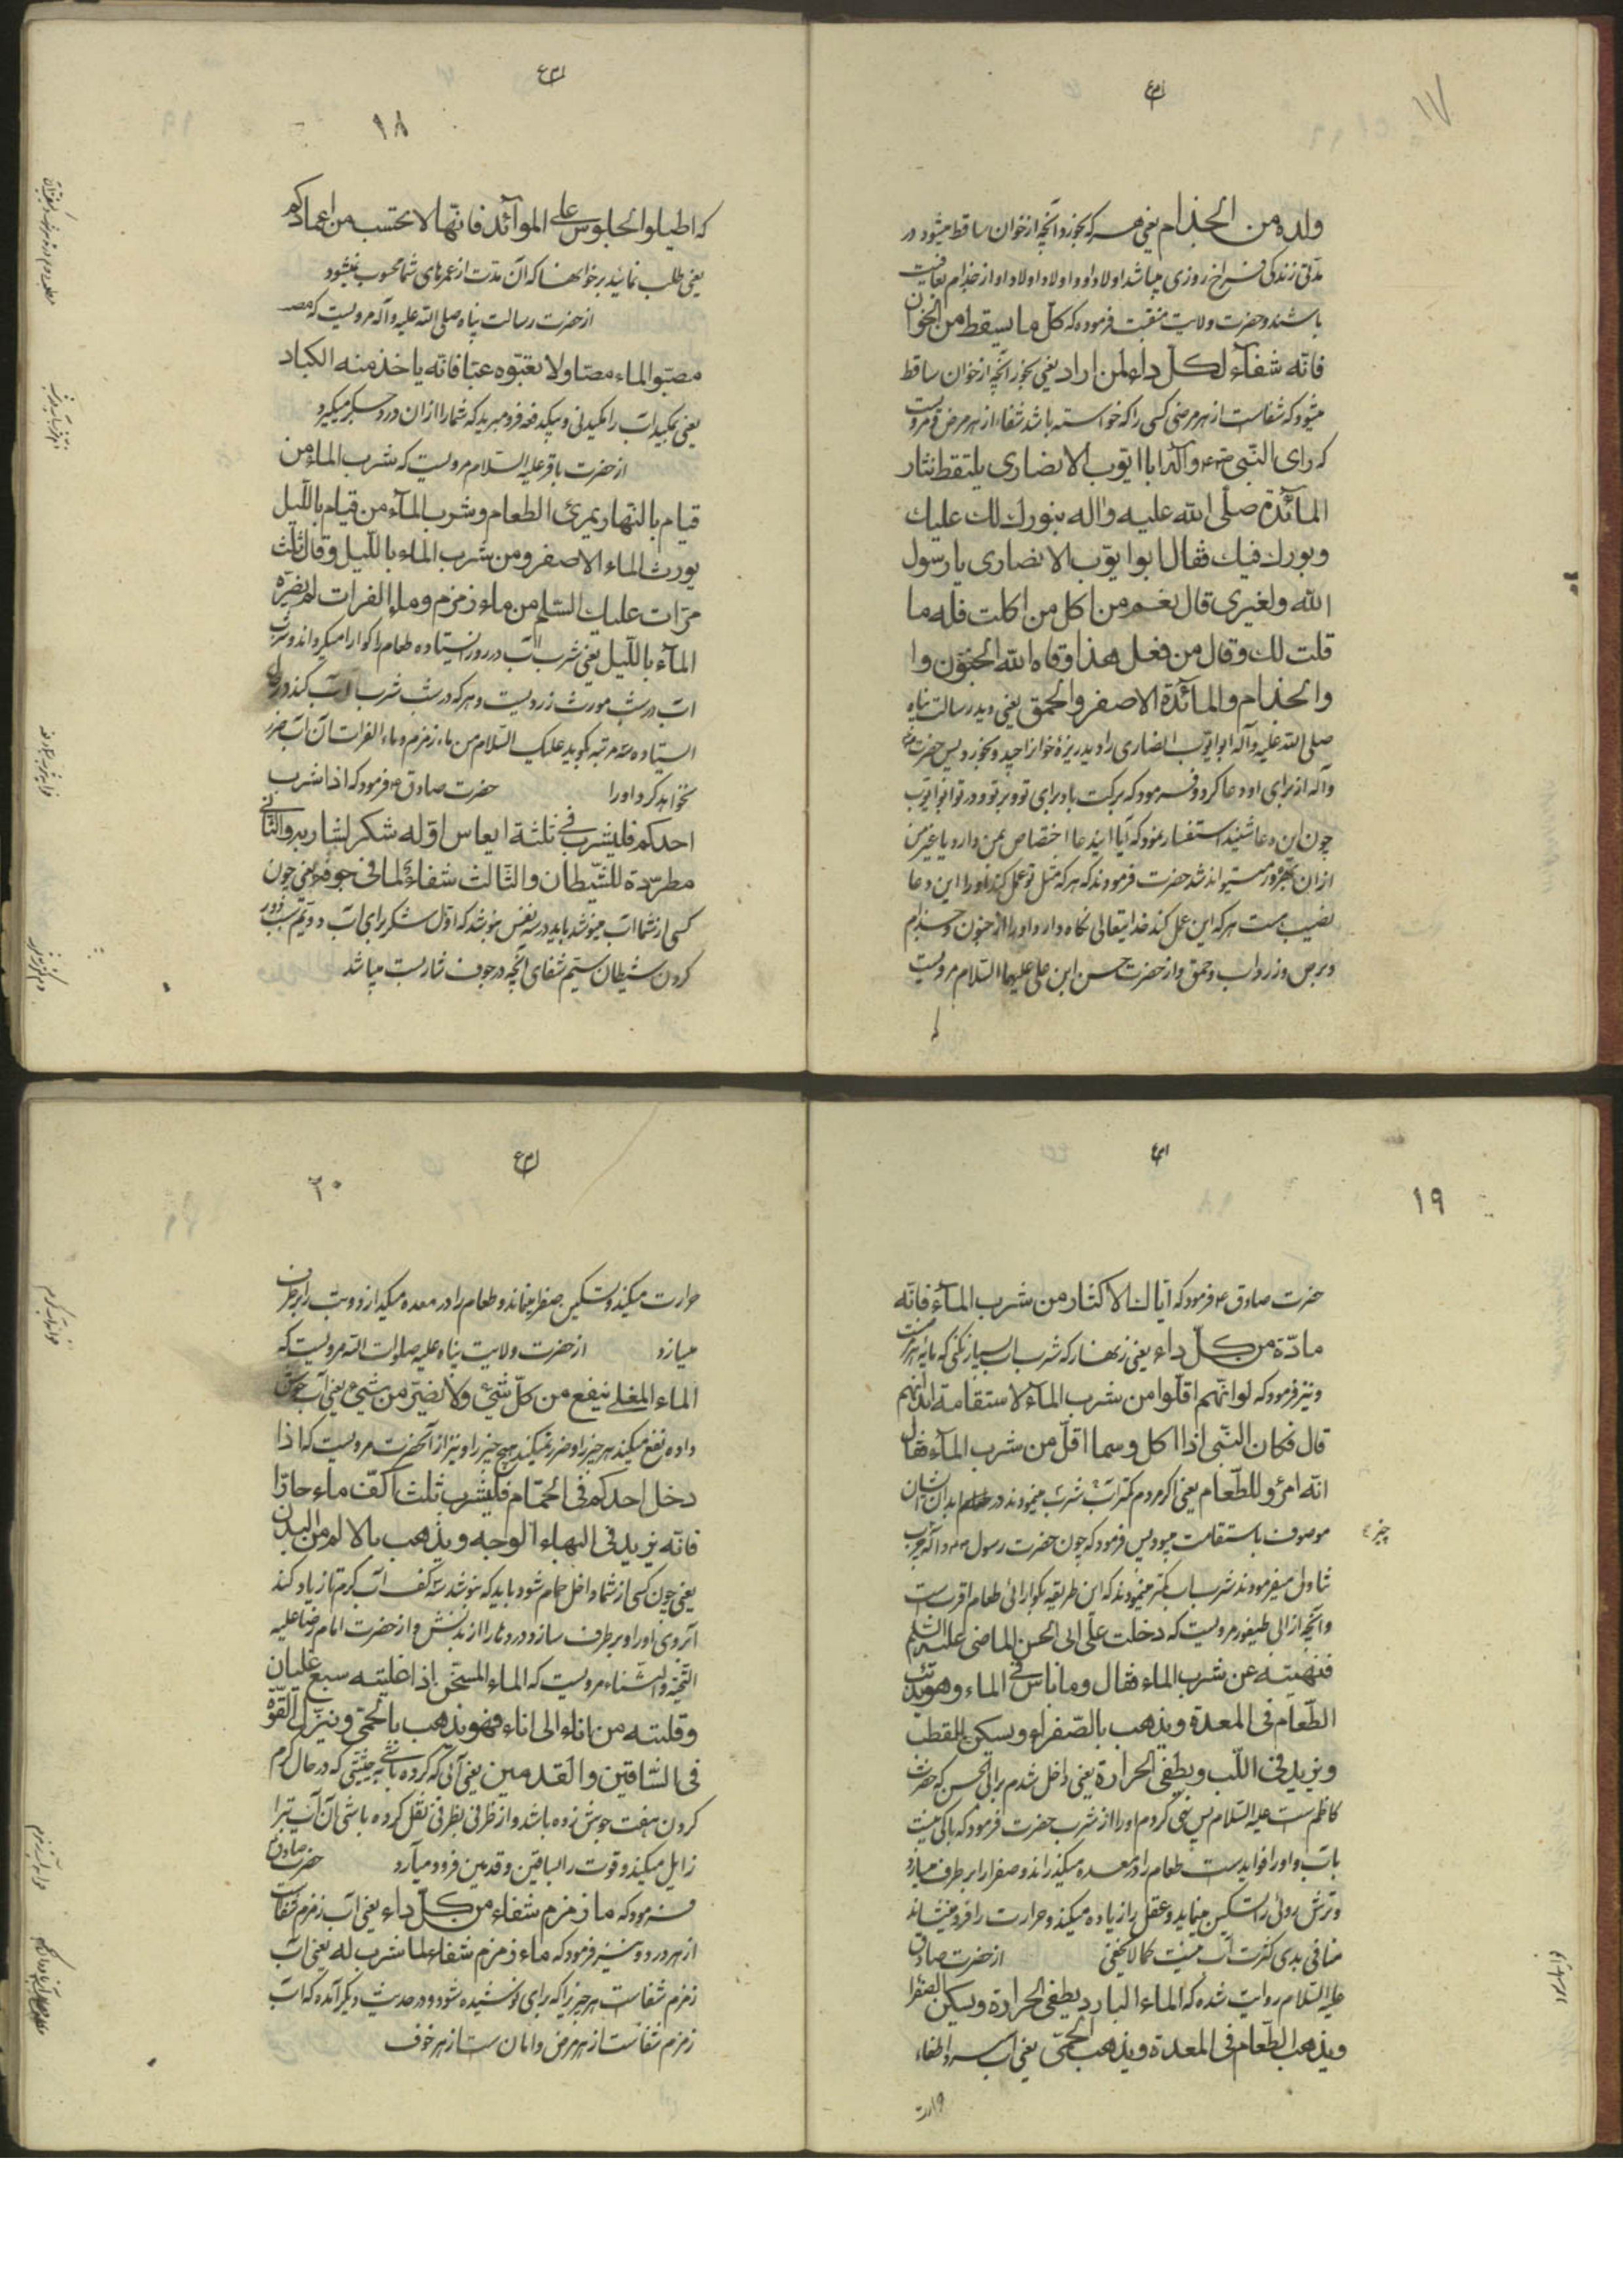 ۱۷
ولده من الجذام یعنی هر که بخورد آنچه از خوان ساقط میشود در
مدتی زندگی فراخ روزی میباشد اولاد او و اولاد اولاد او از جذام بعافیت
باشند و حضرت ولایت منقبت فرموده که کل ما یسقط من الخوان
فانّه شفآء لکلّ داء لمن اراد یعنی بخور آنچه از خوان ساقط
میشود که شفاست از هر مرضی کسی را که خواسته باشد شفا از هر مرض و مرویست
که رای النّبی ص و آله ابا ایّوب الانصاری یلتقط نثار
المآئدة صلّی الله علیه واله بنورك لك علیك
وبورك فیك فقال ابوا یوّب الانصاری یا رسول
الله ولغیری قال نعم من اکل من اکلت فله ما
قلت لك وقال من فعل هذا وقاه الله الجنون وا
والجذام والمآئدة الاصفر والحمق یعنی دید رسالت پناه
صلی الله علیه وآله ابوایوب انصاری را و بدید ریزهٔ خوانرا چید و بخورد پس حضرت
وآله از برای او دعا کرد و فرمود که برکت باد برای تو و بر تو و در تو ابوایوب
چون این دعا شنید استفسار نمود که آیا ایندعا اختصاص بمن دارد یا غیر من
از آن بهره‌ور میتواند شد حضرت فرمودند که هر که مثل تو عمل کند او را این دعا
نصیب است هر که این عمل کند خدایتعالی نگاه دارد او را از جنون و جذام
و برص و زرداب و حمق و از حضرت حسن ابن علی علیهما السلام مرویست
۱۸
که اطیلوا الجلوس علی الموآئد فانّها لا تحتسب من اعمارکم
یعنی طلب نمائید بر خوانها که آن مدّت از عمرهای شما محسوب نمیشود
از حضرت رسالت پناه صلی الله علیه وآله مرویست که مصـ
مصبّوا الماء مصّا ولا تعبّوه عبّا فانّه یاخذ منه الکباد
یعنی بمکید آب را مکیدنی و بیکدفعه فرو مبرید که شما را از آن درد جگر میگیرد
از حضرت باقر علیه السلام مرویست که شرب الماء من
قیام بالنهار یمرئ الطعام وشرب المآء من قیام باللّیل
یورث الماء الاصفر ومن شرب الماء باللّیل وقال ثلث
مرّات علیك السّلم من ماء زمزم وماء الفرات لم یضرّه
المآء باللّیل یعنی شرب آب در روز ایستاده طعام را گوارا میگرداند و شرب
آب در شب مورث زردیست و هر که در شب شرب آب کند در حال
ایستاده سه مرتبه بگوید علیک السلام من ماء زمزم و ماء الفرات آن آب ضرر
نخواهد کرد او را حضرت صادق ع فرمود که اذا شرب
احدکم فلیشرب فی ثلثة انفاس اوّله شکر لشاربه والثانی
مطرّدة للشّیطان والثّالث شفاء لما فی جوفه یعنی چون
کسی از شما آب مینوشد باید در سه نفس بنوشد که اوّل شکر برای آب دویّم سبب دور
کردن شیطان سیّم شفای آنچه در جوف شاربست میباشد
۱۹
حضرت صادق ع فرمود که ایّاك الاکثار من شرب المآء فانّه
مادّة من کلّ داء یعنی زنهار که شرب آب بسیار نکنی که مایهٔ هر مرضست
و نیز فرمود که لو انّهم اقلّوا من شرب الماء لاستقامة ابدانهم
قال فکان النّبی اذا اکل وسما اقلّ من شرب المآء فقال
انّه امرؤ للطّعام یعنی اگر مردم کمتر آب شرب مینمودند در ابدان ایشان
موصوف باستقامت میبود پس فرمود که چون حضرت رسول ص و آله چرب
چیز
تناول میفرمودند شرب آب کمتر مینمودند که این طریقه بگوارائی طعام اقربست
و آنچه از ابی طیفور مرویست که دخلت علی ابی الحسن الماضی علیه السّلم
فنهیته عن شرب الماء فقال وما باس فی الماء وهو یدیر
الطّعام فی المعدة ویذهب بالصّفراء ویسکن القطب
ویزید فی اللّب ویطفی الحرارة یعنی داخل شدم بر ابی الحسن که حضرت
کاظم ست علیه السلام پس نهی کردم او را از شرب حضرت فرمود که باکی نیست
بآب و او را فوایدست طعام را در معده میگذراند و صفرا را بر طرف میسازد
و ترش روئی را تسکین مینماید و عقل را زیاده میکند و حرارت را فرو مینشاند
منافی بدی کثرت آب نیست کما لا یخفی از حضرت صادق
علیه السلام روایت شده که الماء البارد یطفی الحرارة ویسکن الصّفرا
ویذهب الطّعام فی المعدة ویذهب الحمّی یعنی آب سرد اطفاء
حرارت
۲۰
حرارت میکند و تسکین صفرا مینماید و طعام را در معده میگدازد و تب را بر طرف
میسازد از حضرت ولایت پناه علیه صلوات الله مرویست که
الماء المغلی ینفع من کلّ شیء ولا یضرّ من شیء یعنی آب جوش
داده نفع میکند هر چیز را و ضرر نمیکند هیچ چیز را و نیز از آنحضرت مرویست که اذا
دخل احدکم فی الحمّام فلیشرب ثلث اکفّ ماء حارّا
فانّه یزید فی البهاء الوجه ویذهب بالالم من البدن
یعنی چون کسی از شما داخل حمام شود باید که بنوشد سه کف آب گرم تا زیاد کند
آبروی او را و بر طرف سازد درد ها را از بدنش و از حضرت امام رضا علیه
التحیّة والثناء مرویست که الماء المسخّن اذا غلیته سبع غلیان
وقلبته من اناء الی اناء فهو یذهب بالحمّی وینزل القوّة
فی السّاقین والقدمین یعنی آبی که گرم کرده باشی بحیثیتی که در حال گرم
کردن هفت جوش زده باشد و از ظرفی بظرفی نقل کرده باشی آن آب تب را
زایل میکند و قوت را بساقین و قدمین فرود میآرد حضرت صادق
فرمود که ماء زمزم شفاء من کلّ داء یعنی آب زمزم شفاست
از هر درد و نیز فرمود که ماء زمزم شفاء لما شرب له یعنی آب
زمزم شفاست هر چیزیرا که برای او نوشیده شود و در حدیث دیگر آمده که آب
زمزم شفاست از هر مرض و امان ست از هر خوف